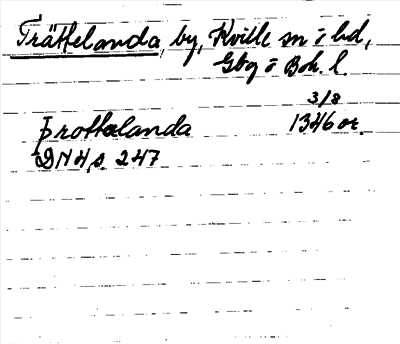 Trättelanda, by, Kville sn o hd,
Gbg o Boh. l.
3/8
Þrottalanda 1346 or.
DN 4, s. 247